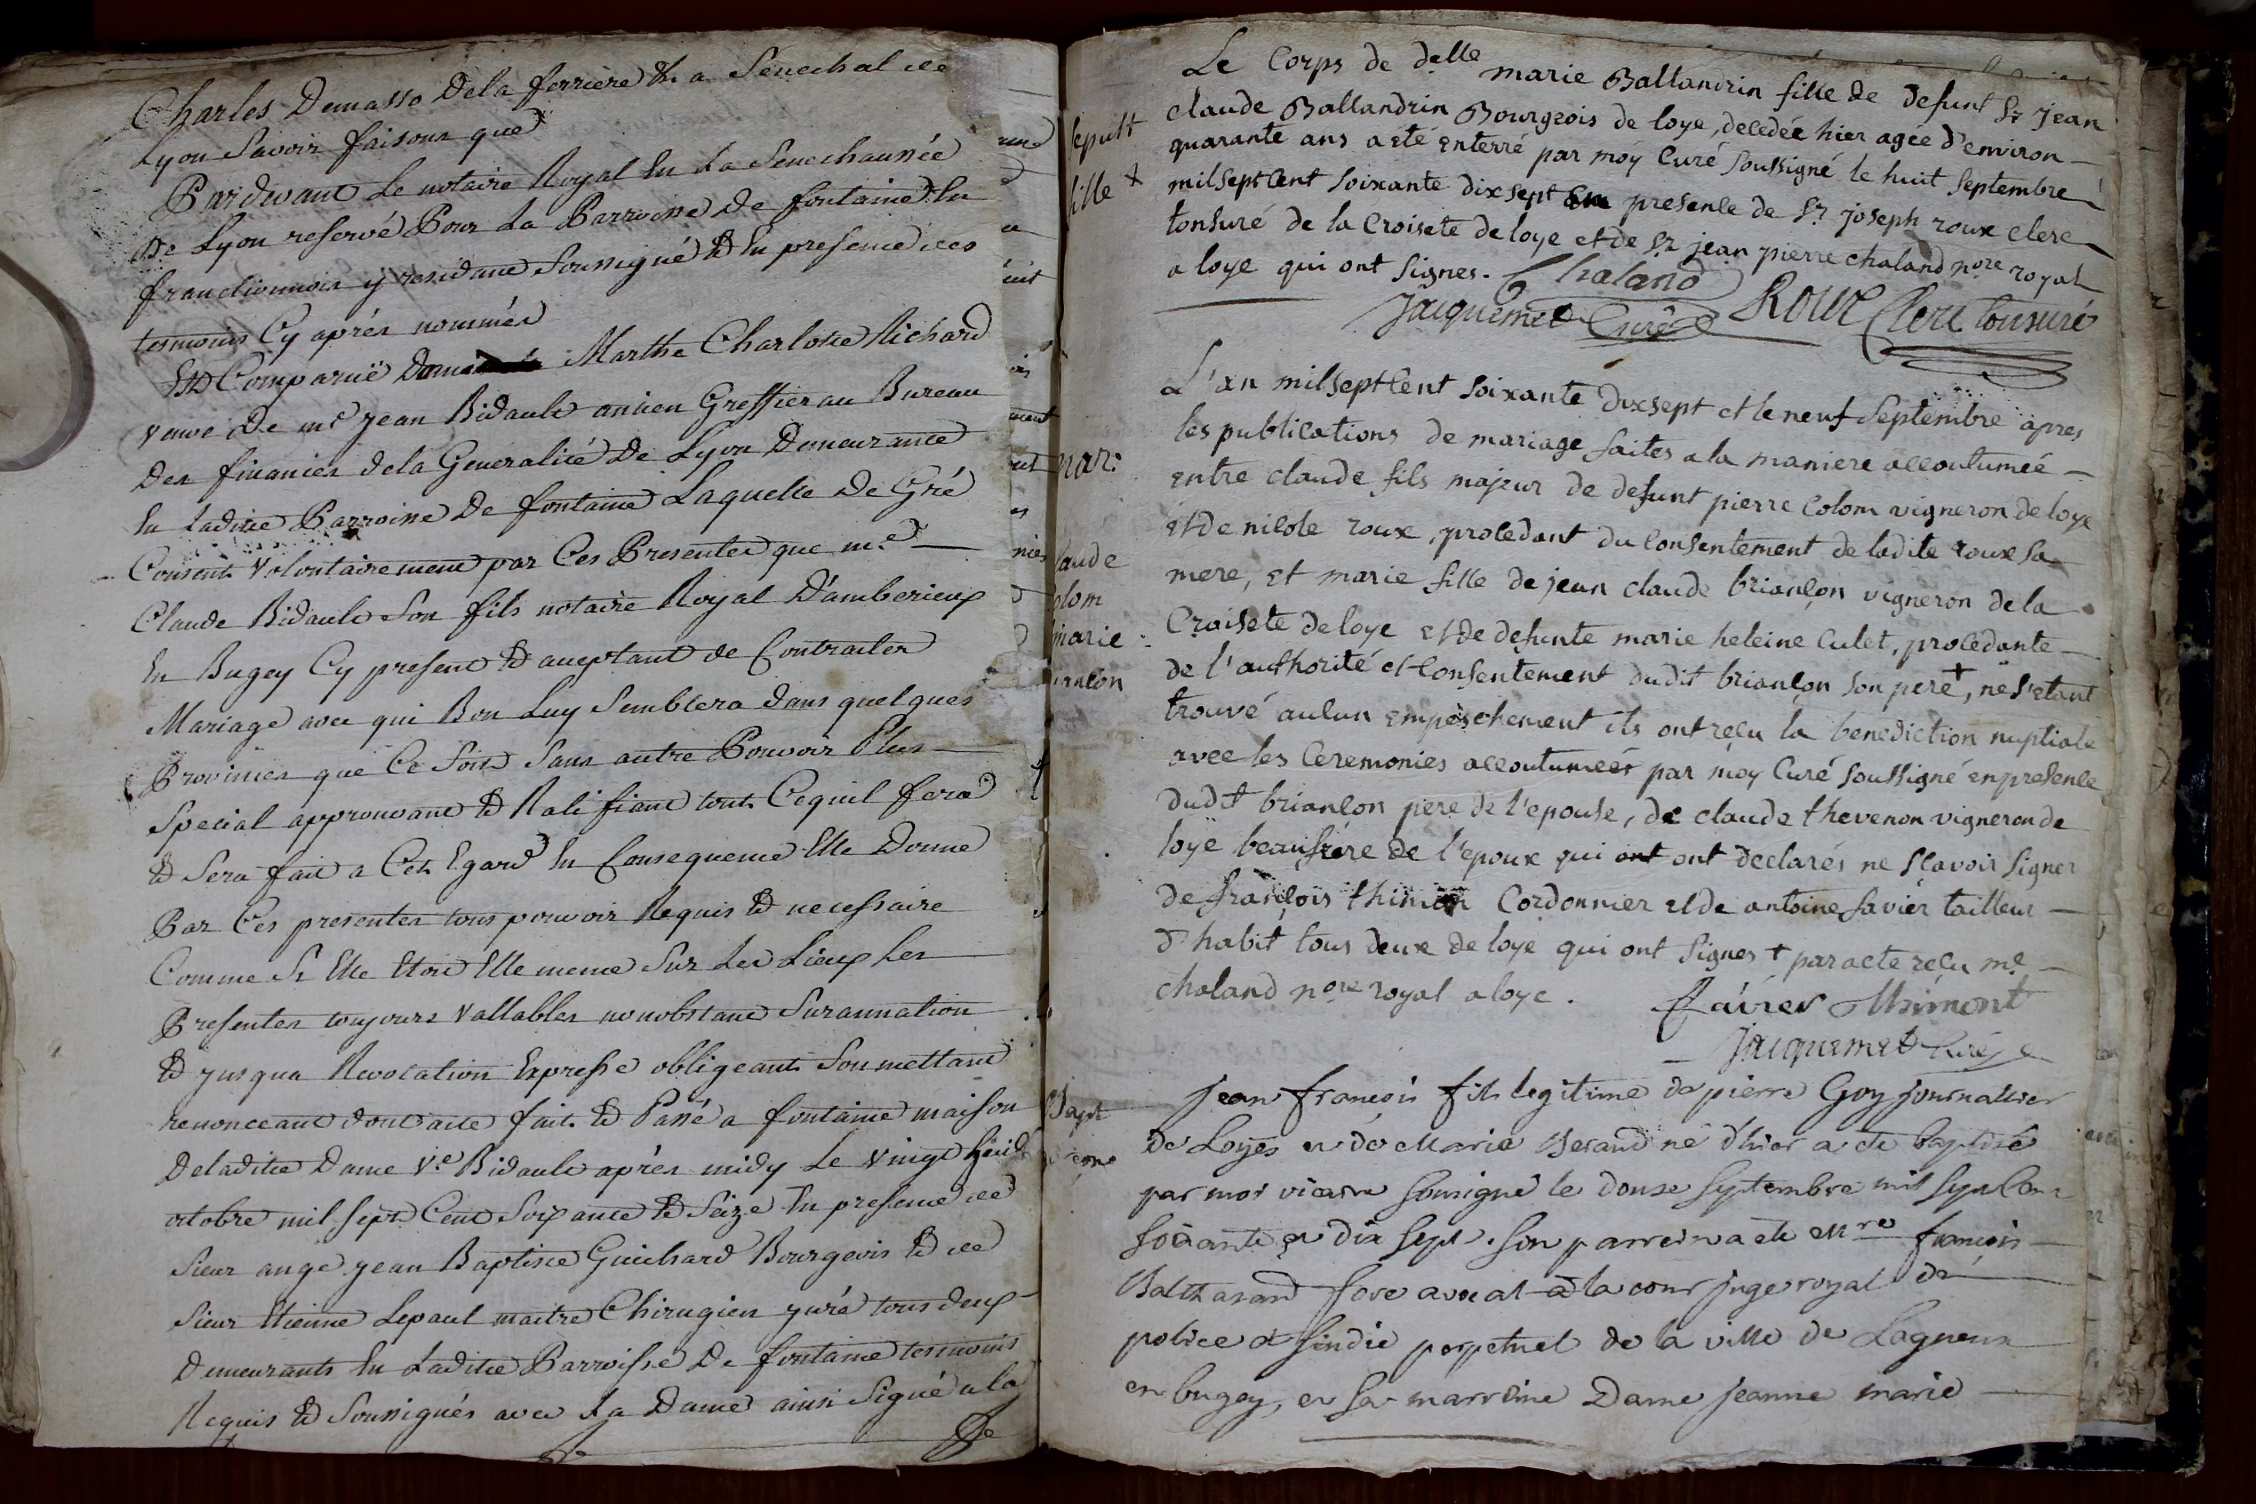 Charles Demasso Dela ferriere &c a Senechal de
Lyon Savoir faisons que
Pardevant Le notaire Royal En La Senechaussée
De Lyon reservé Pour La Parroisse De fontaine En
franclionnois y residant Soussigné Et En presence des
tesmoins Cy aprés nommés
Est Comparuë Dame Marthe Charlotte Richard
veuve De me jean Bidault ancien Greffier au Bureau
Des finances dela Generalité De Lyon Demeurante
En Ladite Parroisse De fontaine Laquelle De Gré
Consent Volontairement par Ces Presentes que me
Claude Bidault Son fils notaire Royal D'amberieux
En Bugey Cy present Et acceptant de Contracter
Mariage avec qui Bon Luy Semblera dans quelques
Provinces que Ce Soit Sans autre Pouvoir Plus
Special approuvant Et Ratifiant tout Cequil fera
Et Sera fait a Cet Egard En Consequence Elle Donne
Par Ces presentes tous pouvoir Requis Et necessaire
Comme Si Elle Etoit Elle meme Sur Les Lieux Les
Presentes toujours Vallables nonobstant Surannation
Et jusqua Revocation Expresse obligeant Soumettant
renonceant dont acte fait Et Passé a fontaine maison
Deladite Dame Ve Bidault aprés midy Le Vingt huit
octobre mil sept Cent Soixante Et Seize En presence de
Sieur ange jean Baptiste Guichard Bourgeois Et de
Sieur Etienne Lepaul maitre Chirugien juré tous deux
Demeurants En Ladite Parroisse De fontaine tesmoins
Requis Et Soussignés avec La Dame ainsi Signé a la
Sepult
fille +
Le Corps de delle marie Ballandrin fille de defunt Sr jean
claude Ballandrin Bourgeois de loye, decedée hier agee d'environ
quarante ans a eté enterré par moy Curé Soussigné le huit Septembre
milseptCent Soixante dixsept en presence de Sr joseph roux clerc
tonsuré de la Croisete de loye et de Sr jean pierre chaland nore royal
a loye qui ont signes. Chaland
Jacquemet Curé Roux Clerc tonsuré
mar:
claude
Colom
marie
briancon
L'an milseptCent Soixante dixsept et le neuf Septembre apres
les publications de mariage faites a la maniere accoutumeé
entre claude fils majeur de defunt pierre Colom vigneron de loye
et de nicole roux, procedant du Consentement de ladite roux sa
mere, et marie fille de jean claude briançon vigneron de la
Croisete de loye et de defunte marie heleine Culet, procedante
de l'authorité et Consentement dudit briançon son pere +, ne s'etant
trouvé aucun empeschement ils ont reçu la benediction nuptiale
avec les Ceremonies accoutumeés par moy Curé soussigné en presence
dudit briançon pere de l'epouse, de claude thevenon vigneron de
loye beaufrere de l'epoux qui ont declarés ne sçavoir signer
de françois thimon Cordonnier et de antoine favier tailleur
d'habit tous deux de loye qui ont signes + par acte reçu me
chaland nore royal a loye. favier Thimont
Jacquemet Curé
Bapt
jean françois fils legitime de pierre Goy journallier
de Loyes et de Marie Berand né d'hier a été baptisé
par moi vicaire soussigné le douze septembre mil sept Cent
soixante et dix sept. son parrein a eté Mre françois
Balthazard fore avocat a la cour juge royal de
police et sindic perpetuel de la ville de Lagneux
en bugey, et sa marreine Dame jeanne marie